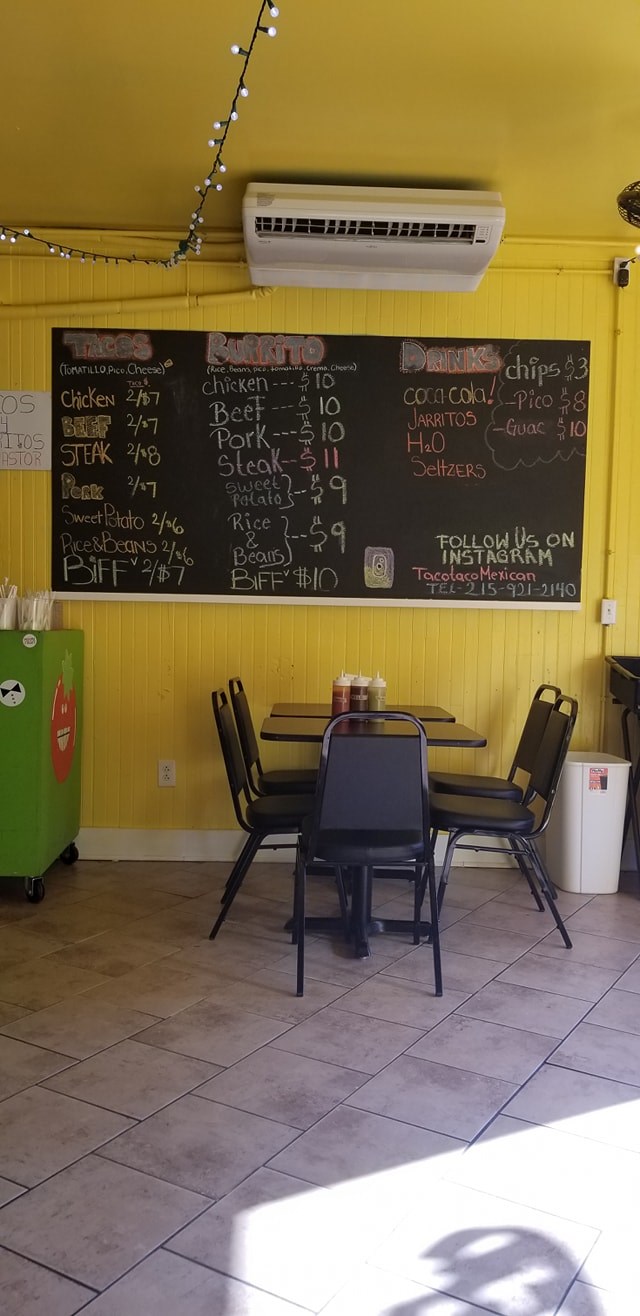 TACOS
(TOMATILLO, Pico, Cheese)
CHICKEN 2/$7
BEEF 2/$7
STEAK 2/$8
PORK 2/$7
Sweet Potato 2/$6
Rice & Beans 2/$6
BiFFᵛ 2/$7
BURRITO
(Rice, Beans, pico, tomatillo, Crema, Cheese)
chicken --- $10
Beef --- $10
Pork --- $10
Steak -- $11
sweet
potato }-- $9
Rice
&
Beans }-- $9
BIFFᵛ $10
DRINKS
coca-cola!
JARRITOS
H₂O
Seltzers
chips $3
-Pico $8
-Guac $10
FOLLOW US ON
INSTAGRAM
TacotacoMexican
TEL-215-921-2140